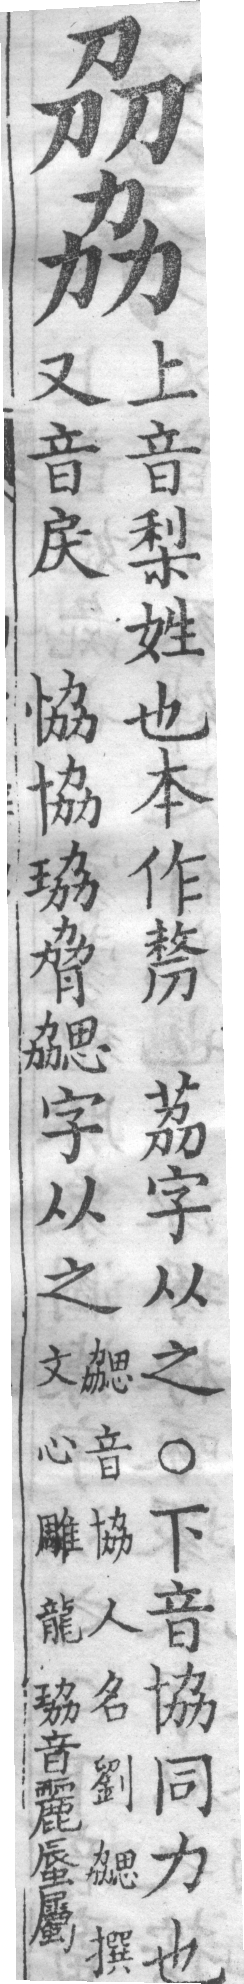 刕劦
上音梨姓也本作𠞭 荔字从之○下音協同力也
又音戾 恊協珕脅勰字从之
勰音協人名劉勰撰
文心雕龍珕音麗蜃屬